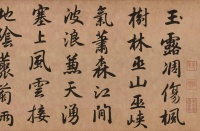 玉露凋傷楓
樹林巫山巫峽
氣蕭森江間
波浪蒹天湧
塞上風雲接
地陰叢菊兩